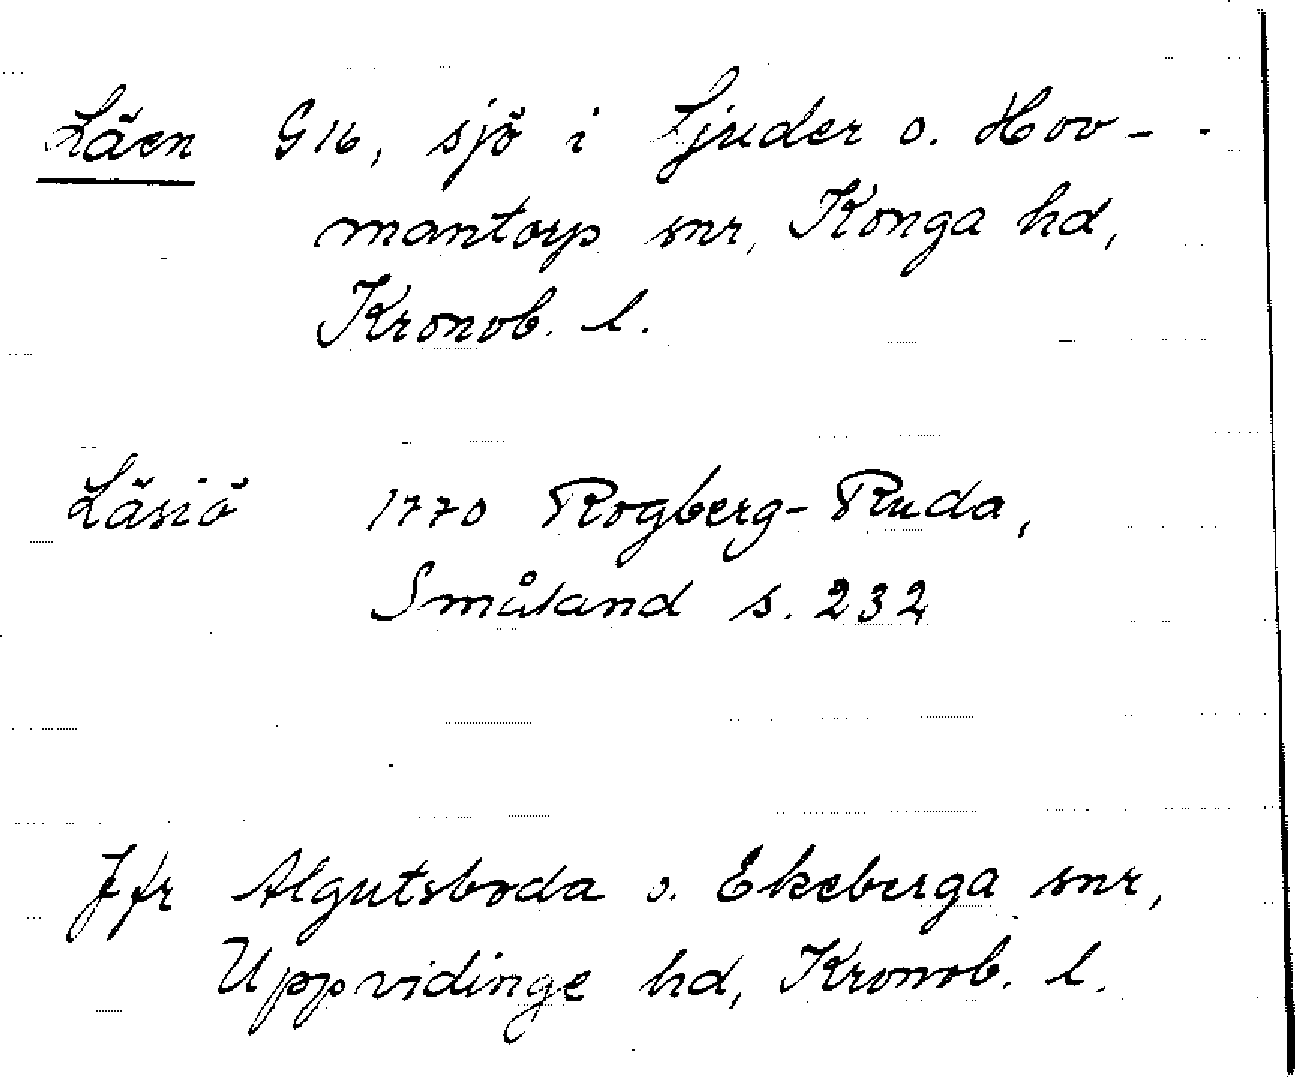 Läen G16, sjö i Ljuder o. Hov-
mantorp snr, Konga hd,
Kronob. l.
Läsiö 1770 Rogberg-Ruda,
Småland s. 232
Jfr Algutsboda o. Ekeberga snr,
Uppvidinge hd, Kronob. l.